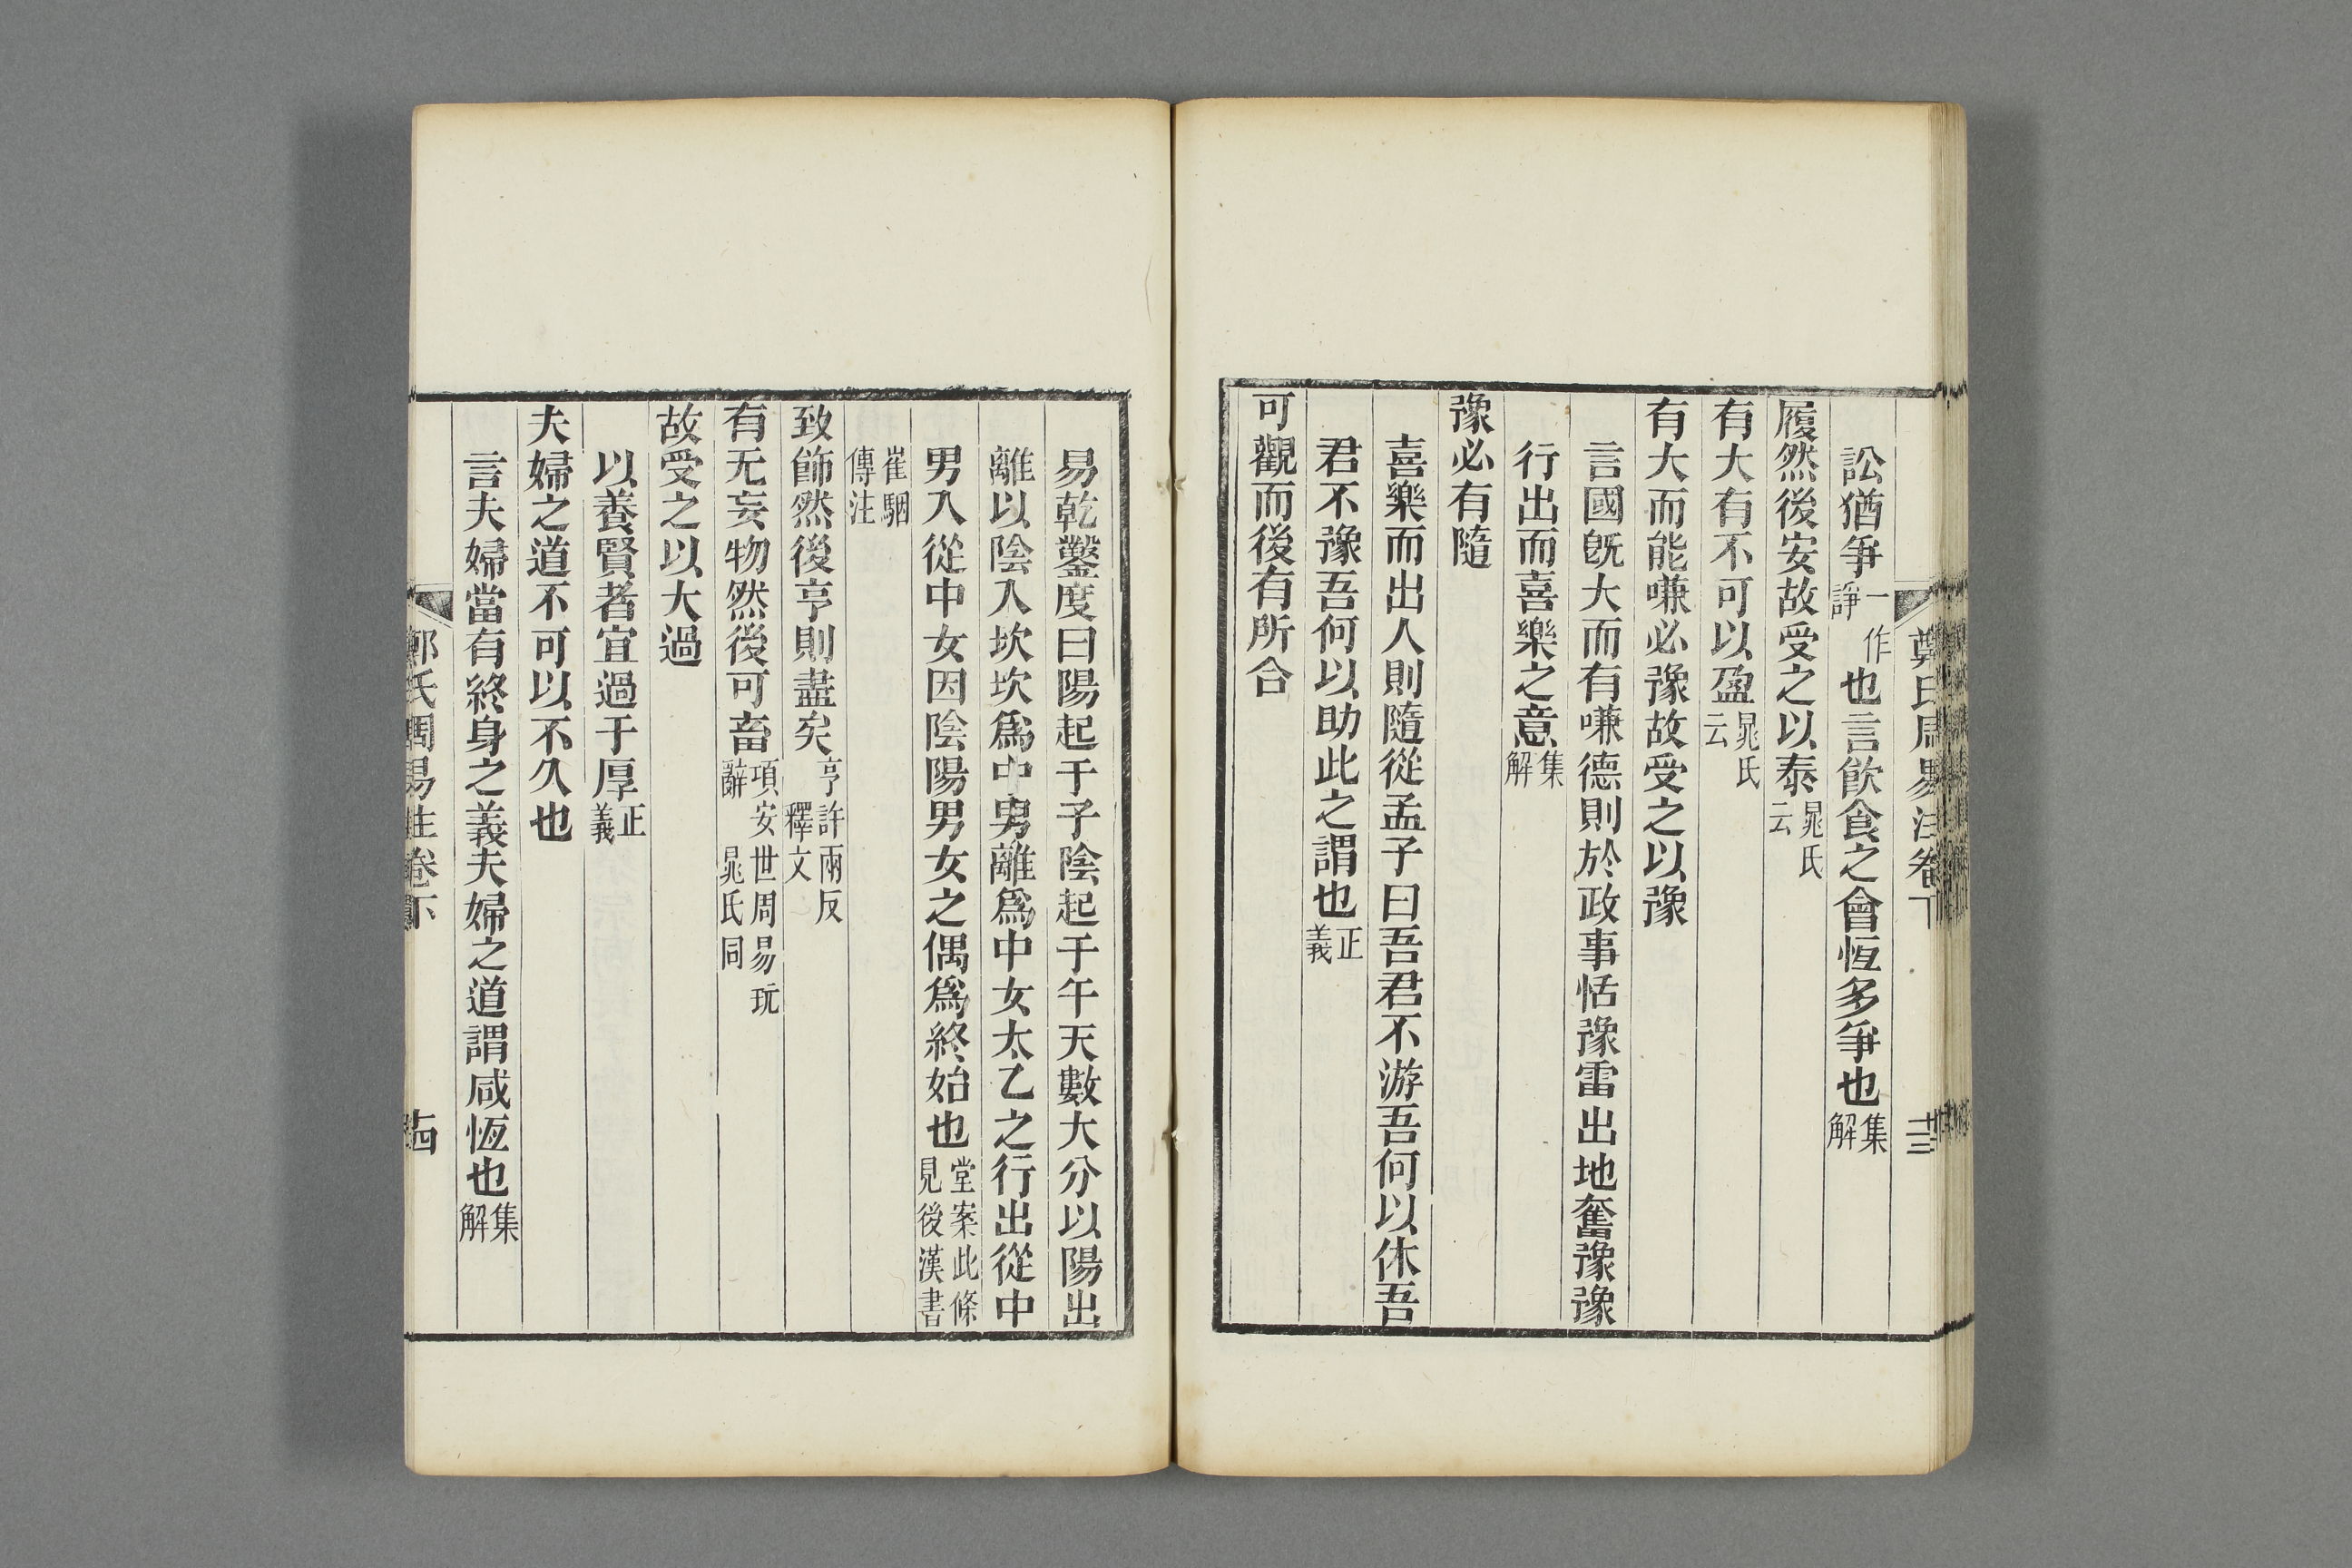 鄭氏周易注卷下 十三
訟猶爭一作諍也言飮食之會恆多爭也集解
履然後安故受之以泰晁氏云
有大有不可以盈晁氏云
有大而能嗛必豫故受之以豫
言國旣大而有嗛德則於政事恬豫雷出地奮豫豫
行出而喜樂之意集解
豫必有隨
喜樂而出人則隨從孟子曰吾君不游吾何以休吾
君不豫吾何以助此之謂也正義
可觀而後有所合
易乾鑿度曰陽起于子陰起于午天數大分以陽出
離以陰入坎坎爲中男離爲中女太乙之行出從中
男入從中女因陰陽男女之偶爲終始也堂案此條見後漢書
崔駰傳注
致飾然後亨則盡矣亨許兩反釋文
有无妄物然後可畜項安世周易玩辭晁氏同
故受之以大過
以養賢者宜過于厚正義
夫婦之道不可以不久也
言夫婦當有終身之義夫婦之道謂咸恆也集解
鄭氏周易注卷下 十四